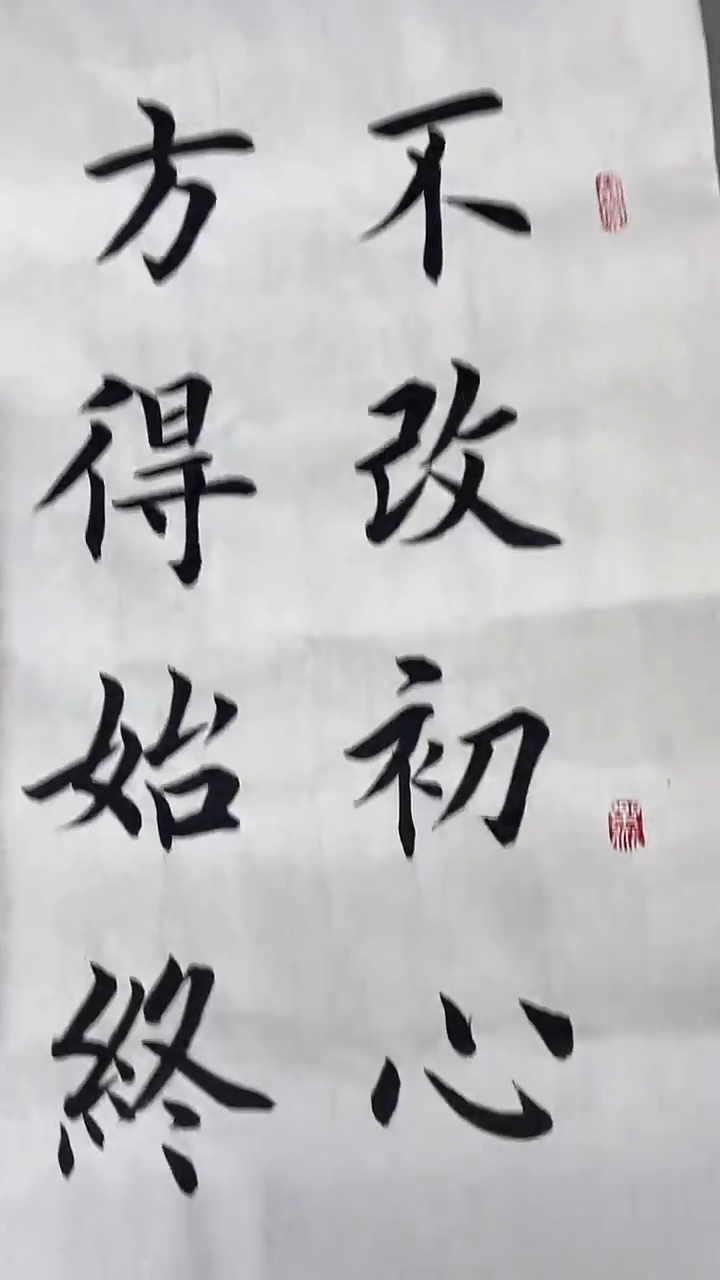 不改初心
方得始終